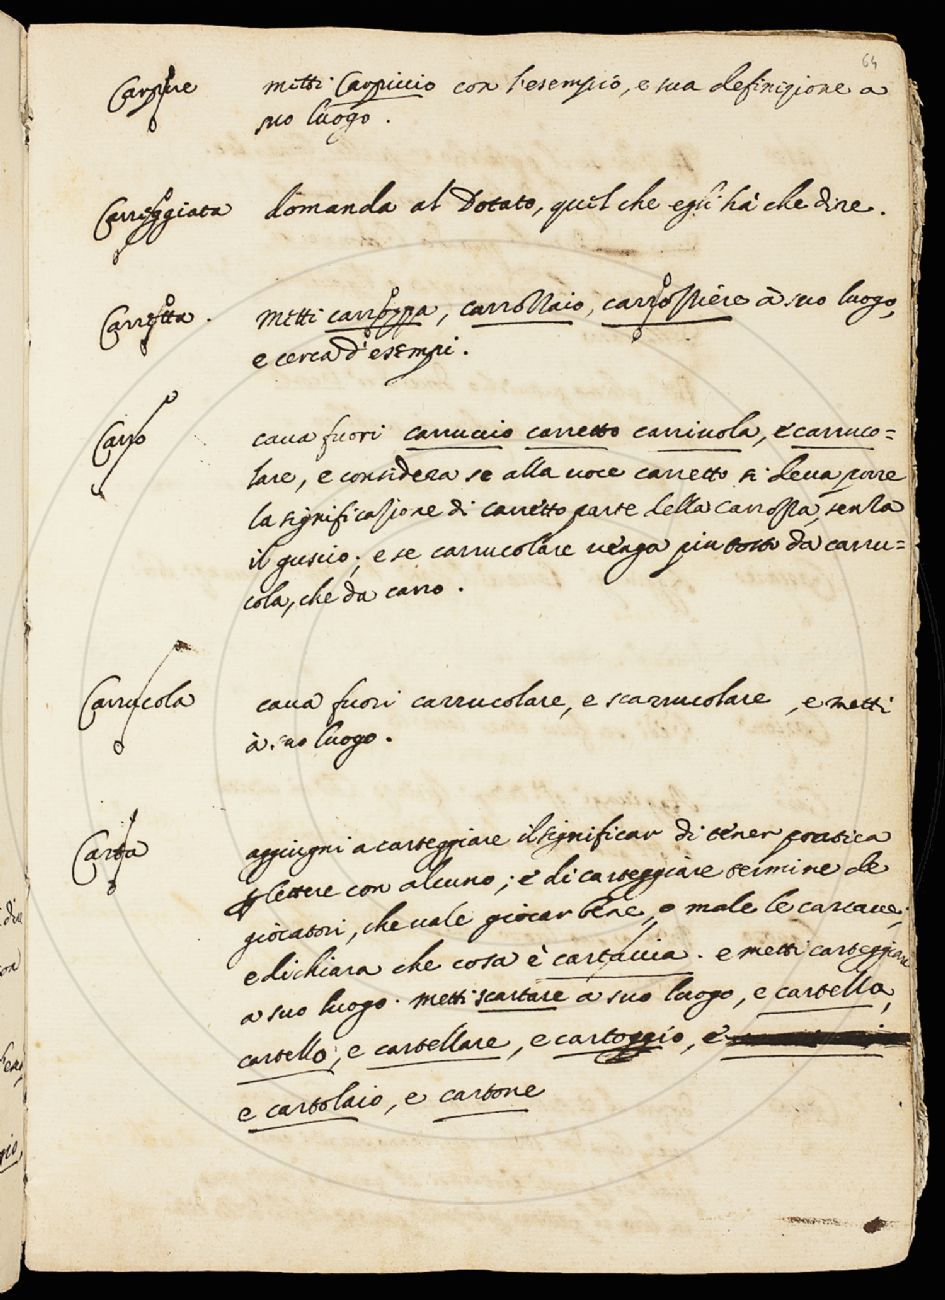 64
Carpire metti Carpiccio con l'esempio, e sua definizione a
suo luogo.
Carreggiata domanda al Dotato, quel che egli há che dire.
Carretta. metti carrozza, carrozzaio, carrozziere à suo luogo,
e cerca d'esempi.
Carro caua fuori carruccio carretto carriuola, e carruco=
lare, e considera se alla uoce carretto si deua porre
la significazione di carretto parte della carrozza, senza
il guscio; e se carrucolare uenga piu tosto da carru=
cola, che da carro.
Carrucola caua fuori carrucolare, e scarrucolare, e metti
à suo luogo.
Carta aggiugni a carteggiare il significar di tener pratica
lettere con alcuno; e di carteggiare termine de
giocatori, che uale giocar bene, o male le carte
e dichiara che cosa è cartaccia. e metti carteggiare
a suo luogo. metti scartare a suo luogo, e cartella,
cartello, e cartellare, e cartoggio, e
e cartolaio, e cartone